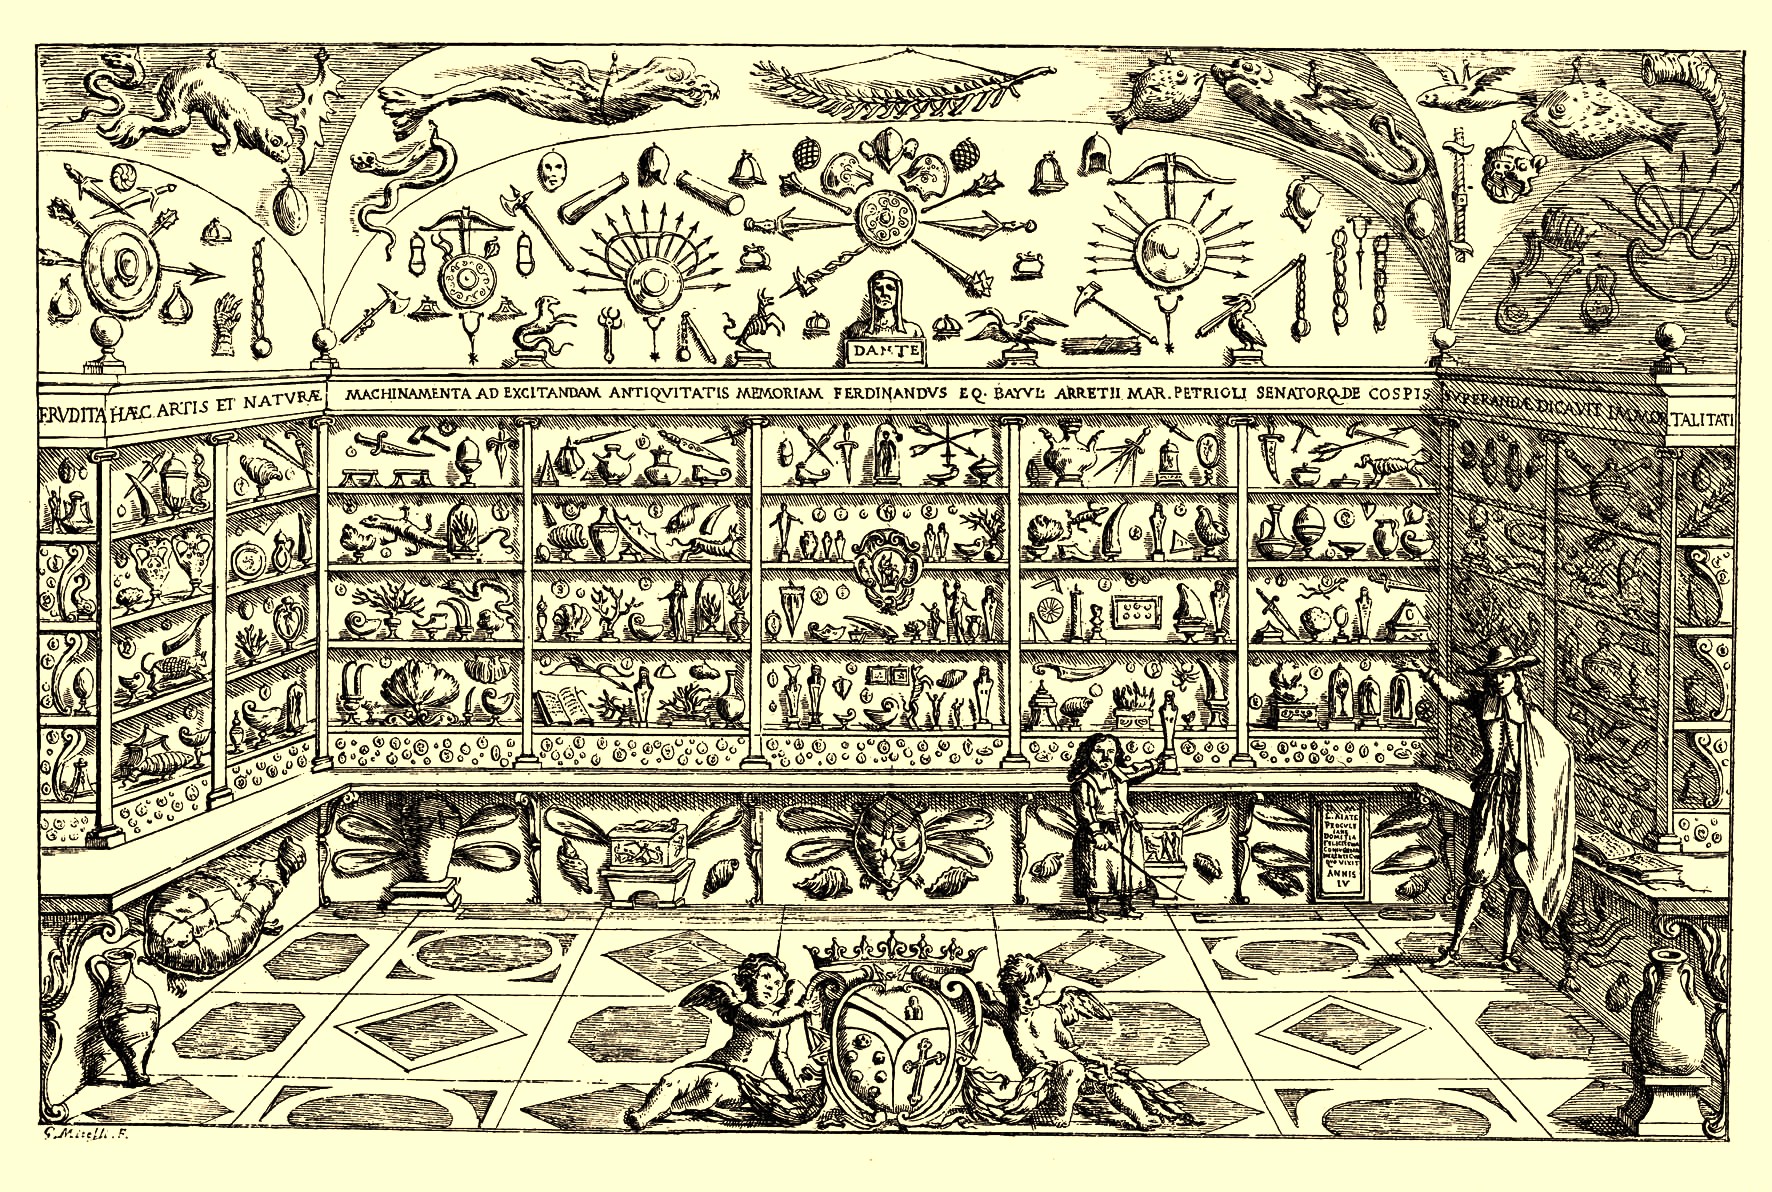 DANTE
ERVDITA HÆC ARTIS ET NATVRÆ MACHINAMENTA AD EXCITANDAM ANTIQVITATIS MEMORIAM FERDINANDVS EQ. BAYVL: ARRETII MAR. PETRIOLI SENATORQ.DE COSPIS SVPERANDÆ DICAVIT IMMORTALITATI
PROCVLE
DOMITIA
ANNIS
LV
G. Mitelli. F.